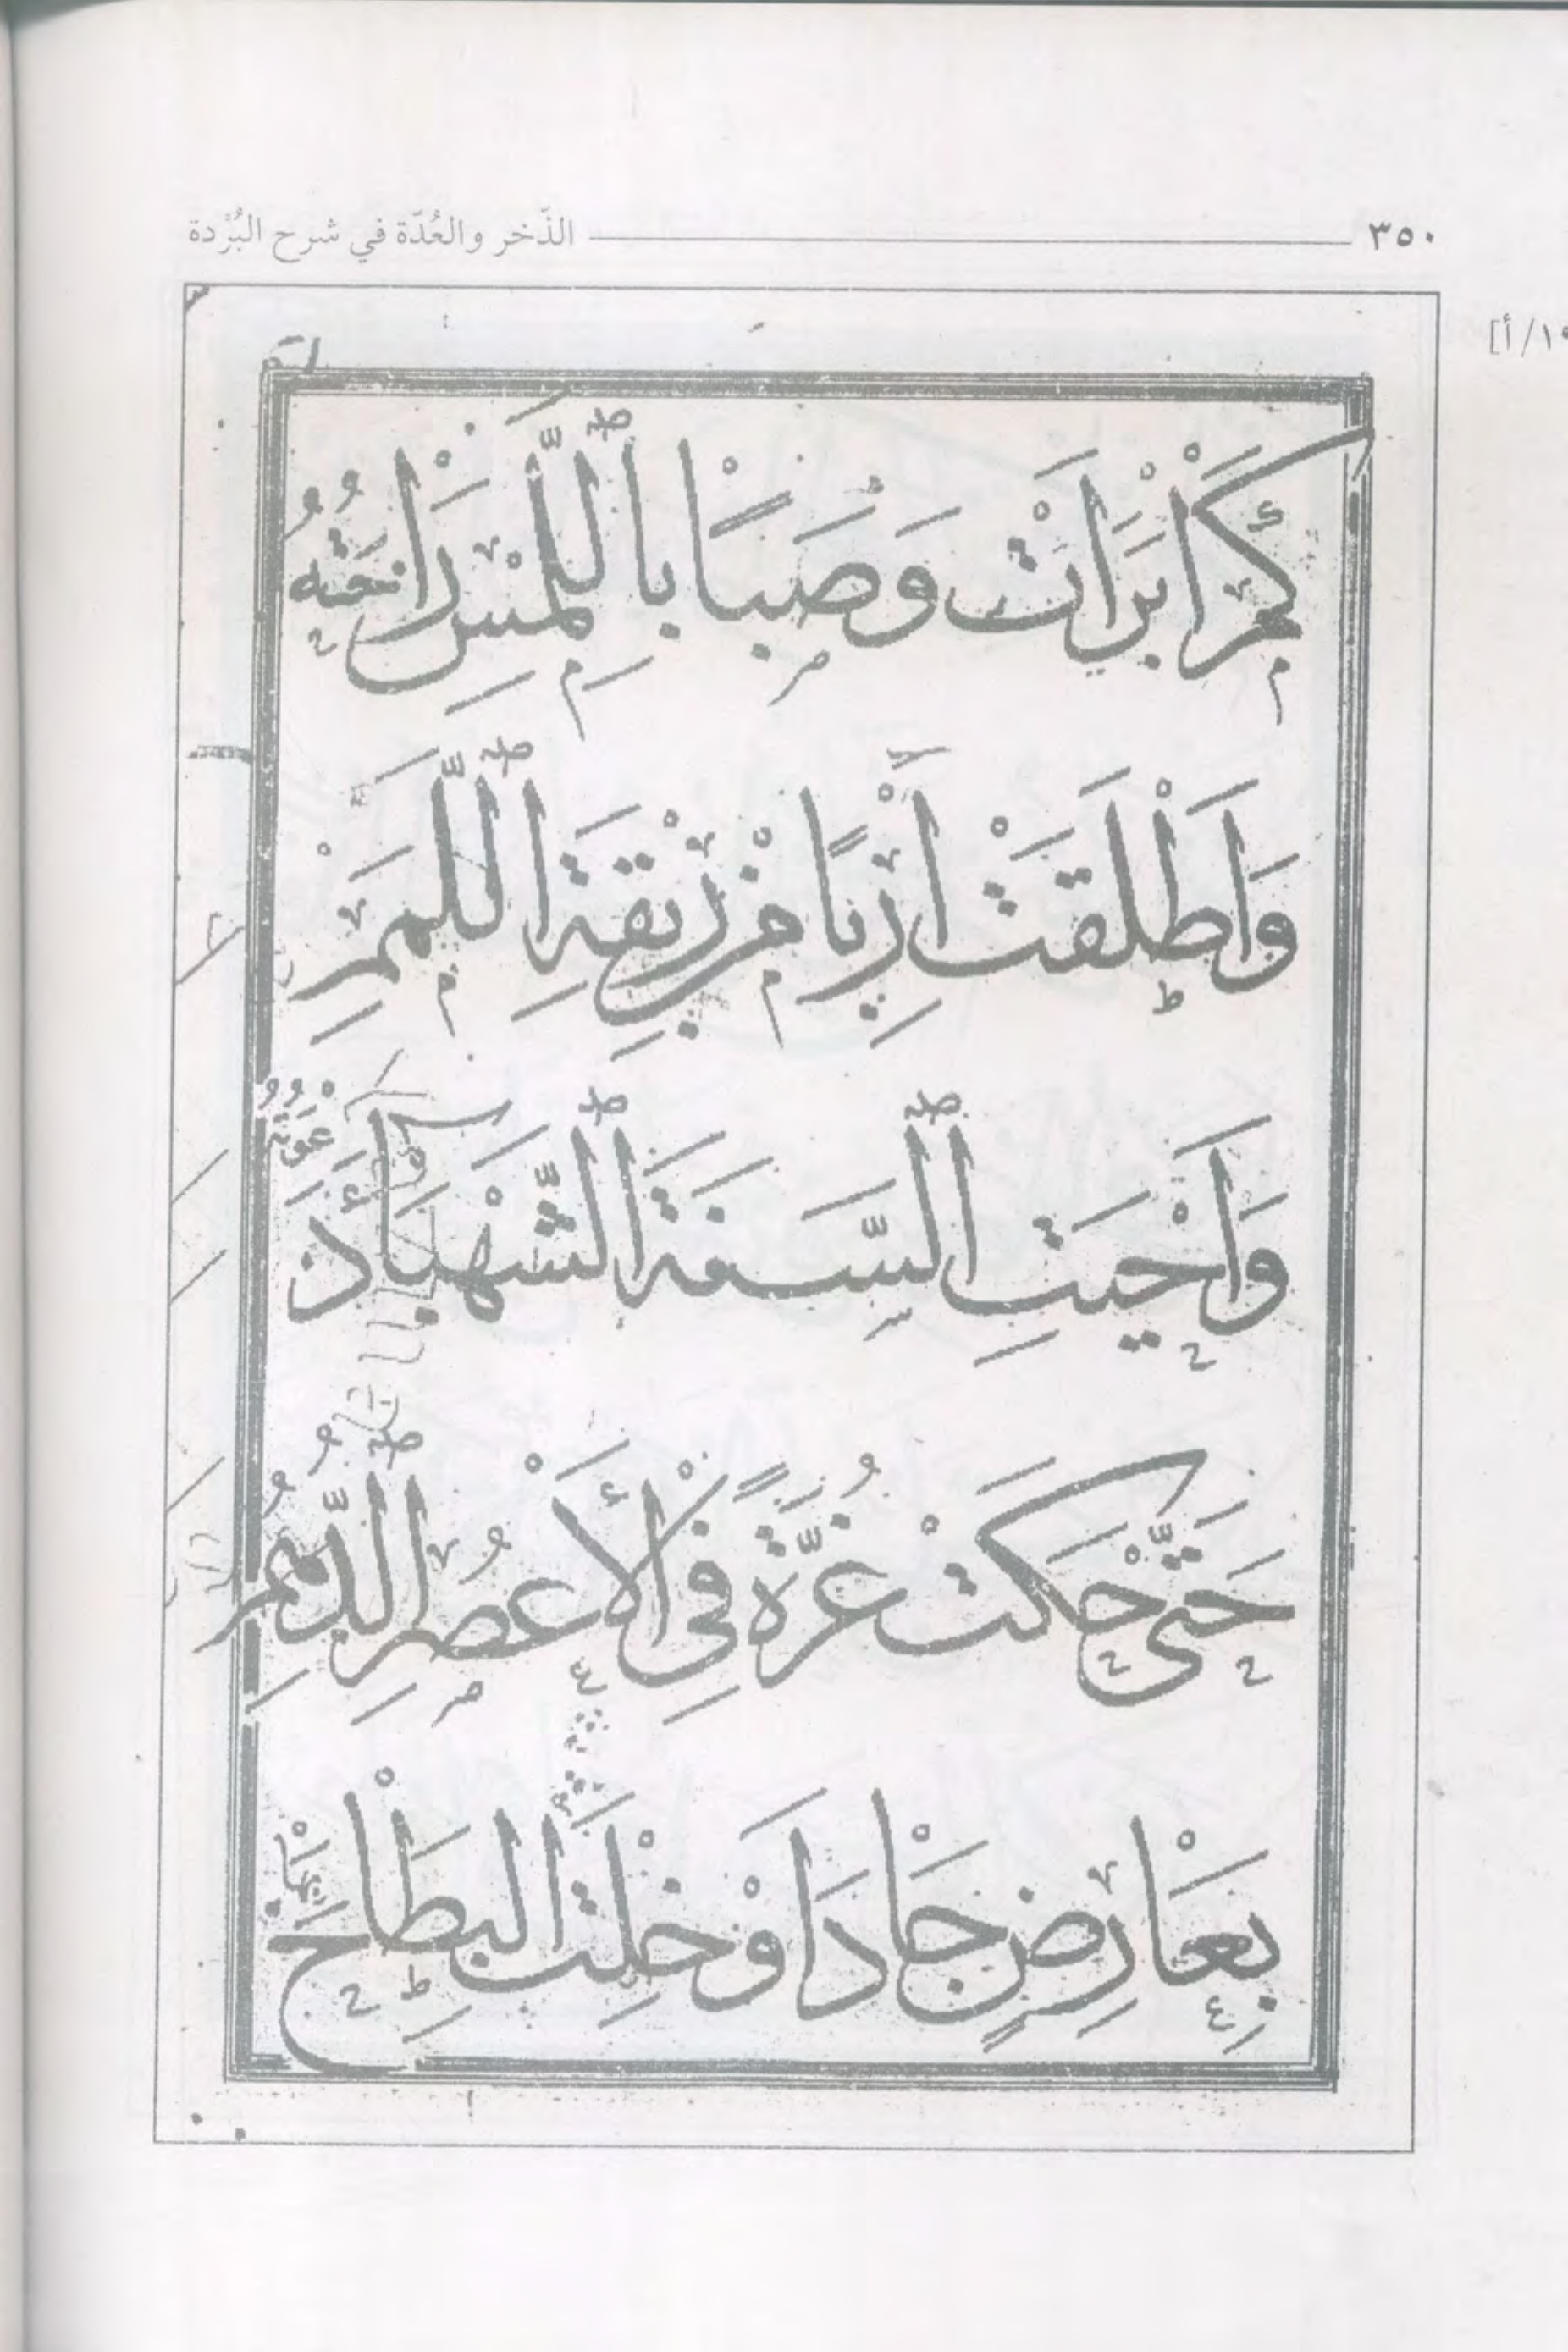 ٣٥٠ الذّخر والعُدّة في شرح البُرْدة
١٥/أ]
كَمْ أَبْرَأَتْ وَصِبًا بِاللَّمْسِ رَاحَتُهُ
وَأَطْلَقَتْ أَرِبًا مِنْ رِبْقَةِ اللَّمَمِ
وَأَحْيَتِ السَّنَةَ الشَّهْبَاءَ دَعْوَتُهُ
حَتَّى حَكَتْ غُرَّةً فِي الْأَعْصُرِ الدُّهُمِ
بِعَارِضٍ جَادَ أَوْ خِلْتَ الْبِطَاحَ بِهَا